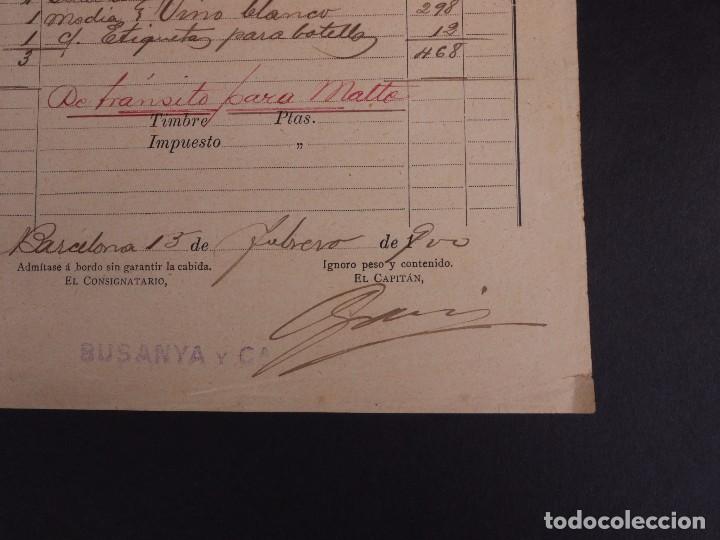 1 media § Vino blanco 298
1 c/. Etiquetas para botella 12
3 468
De tránsito para Matto
Timbre Ptas.
Impuesto „
Barcelona 15 de Febrero de 1900
Admítase á bordo sin garantir la cabida. Ignoro peso y contenido.
EL CONSIGNATARIO, EL CAPITÁN,
BUSANYA Y CA
todocoleccion.net